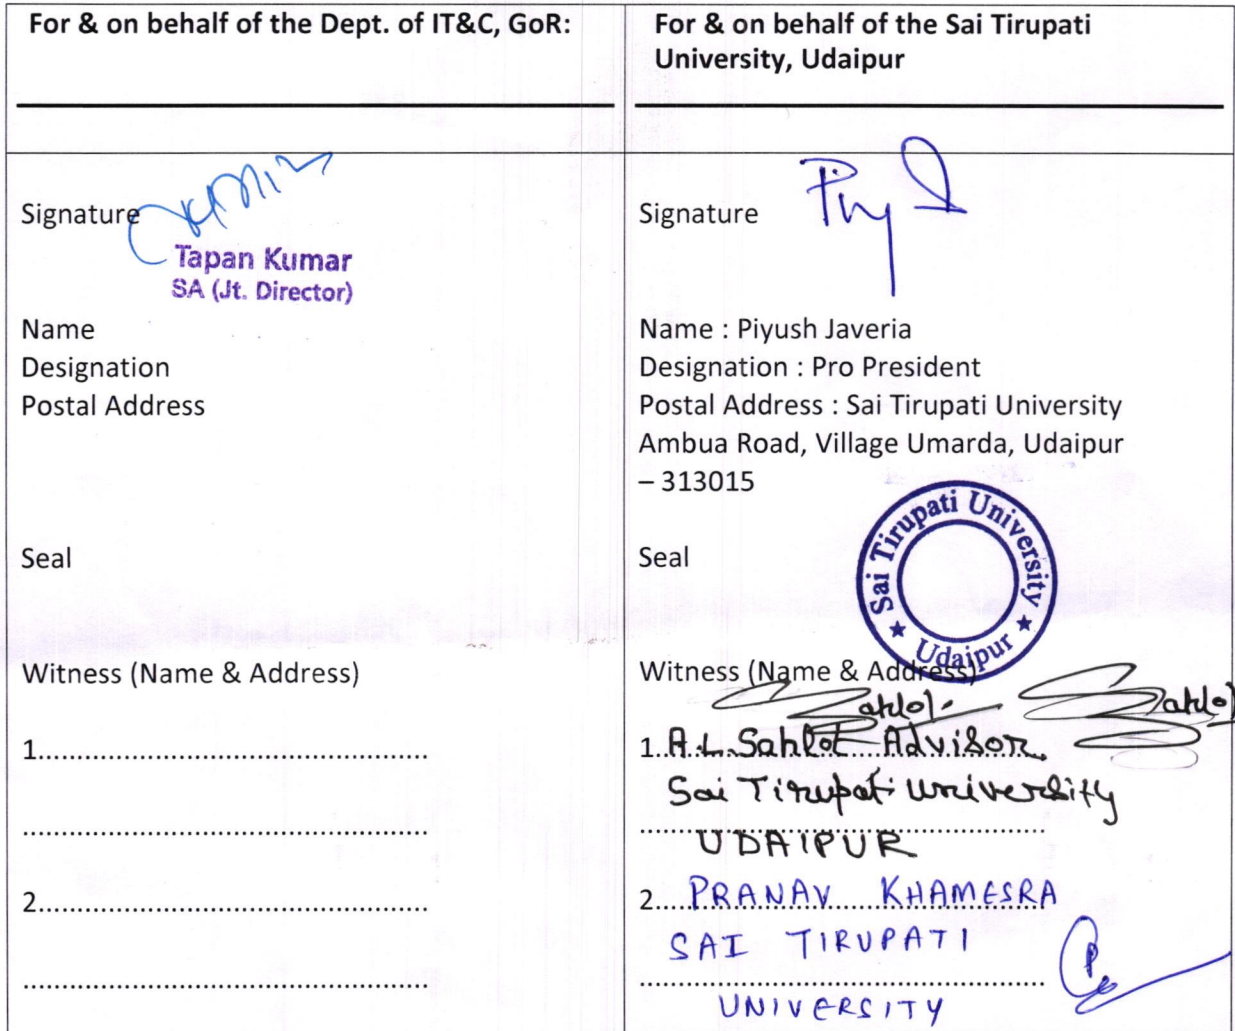 For & on behalf of the Dept. of IT&C, GoR:
Signature
Tapan Kumar
SA (Jt. Director)
Name
Designation
Postal Address
Seal
Witness (Name & Address)
1.................................................
..................................................
2.................................................
..................................................
For & on behalf of the Sai Tirupati
University, Udaipur
Signature
Name : Piyush Javeria
Designation : Pro President
Postal Address : Sai Tirupati University
Ambua Road, Village Umarda, Udaipur
– 313015
Seal
Sai Tirupati University
★ Udaipur ★
Witness (Name & Address)
1. A.L. Sahlot Advisor
Sai Tirupati University
UDAIPUR
2. PRANAV KHAMESRA
SAI TIRUPATI
UNIVERSITY